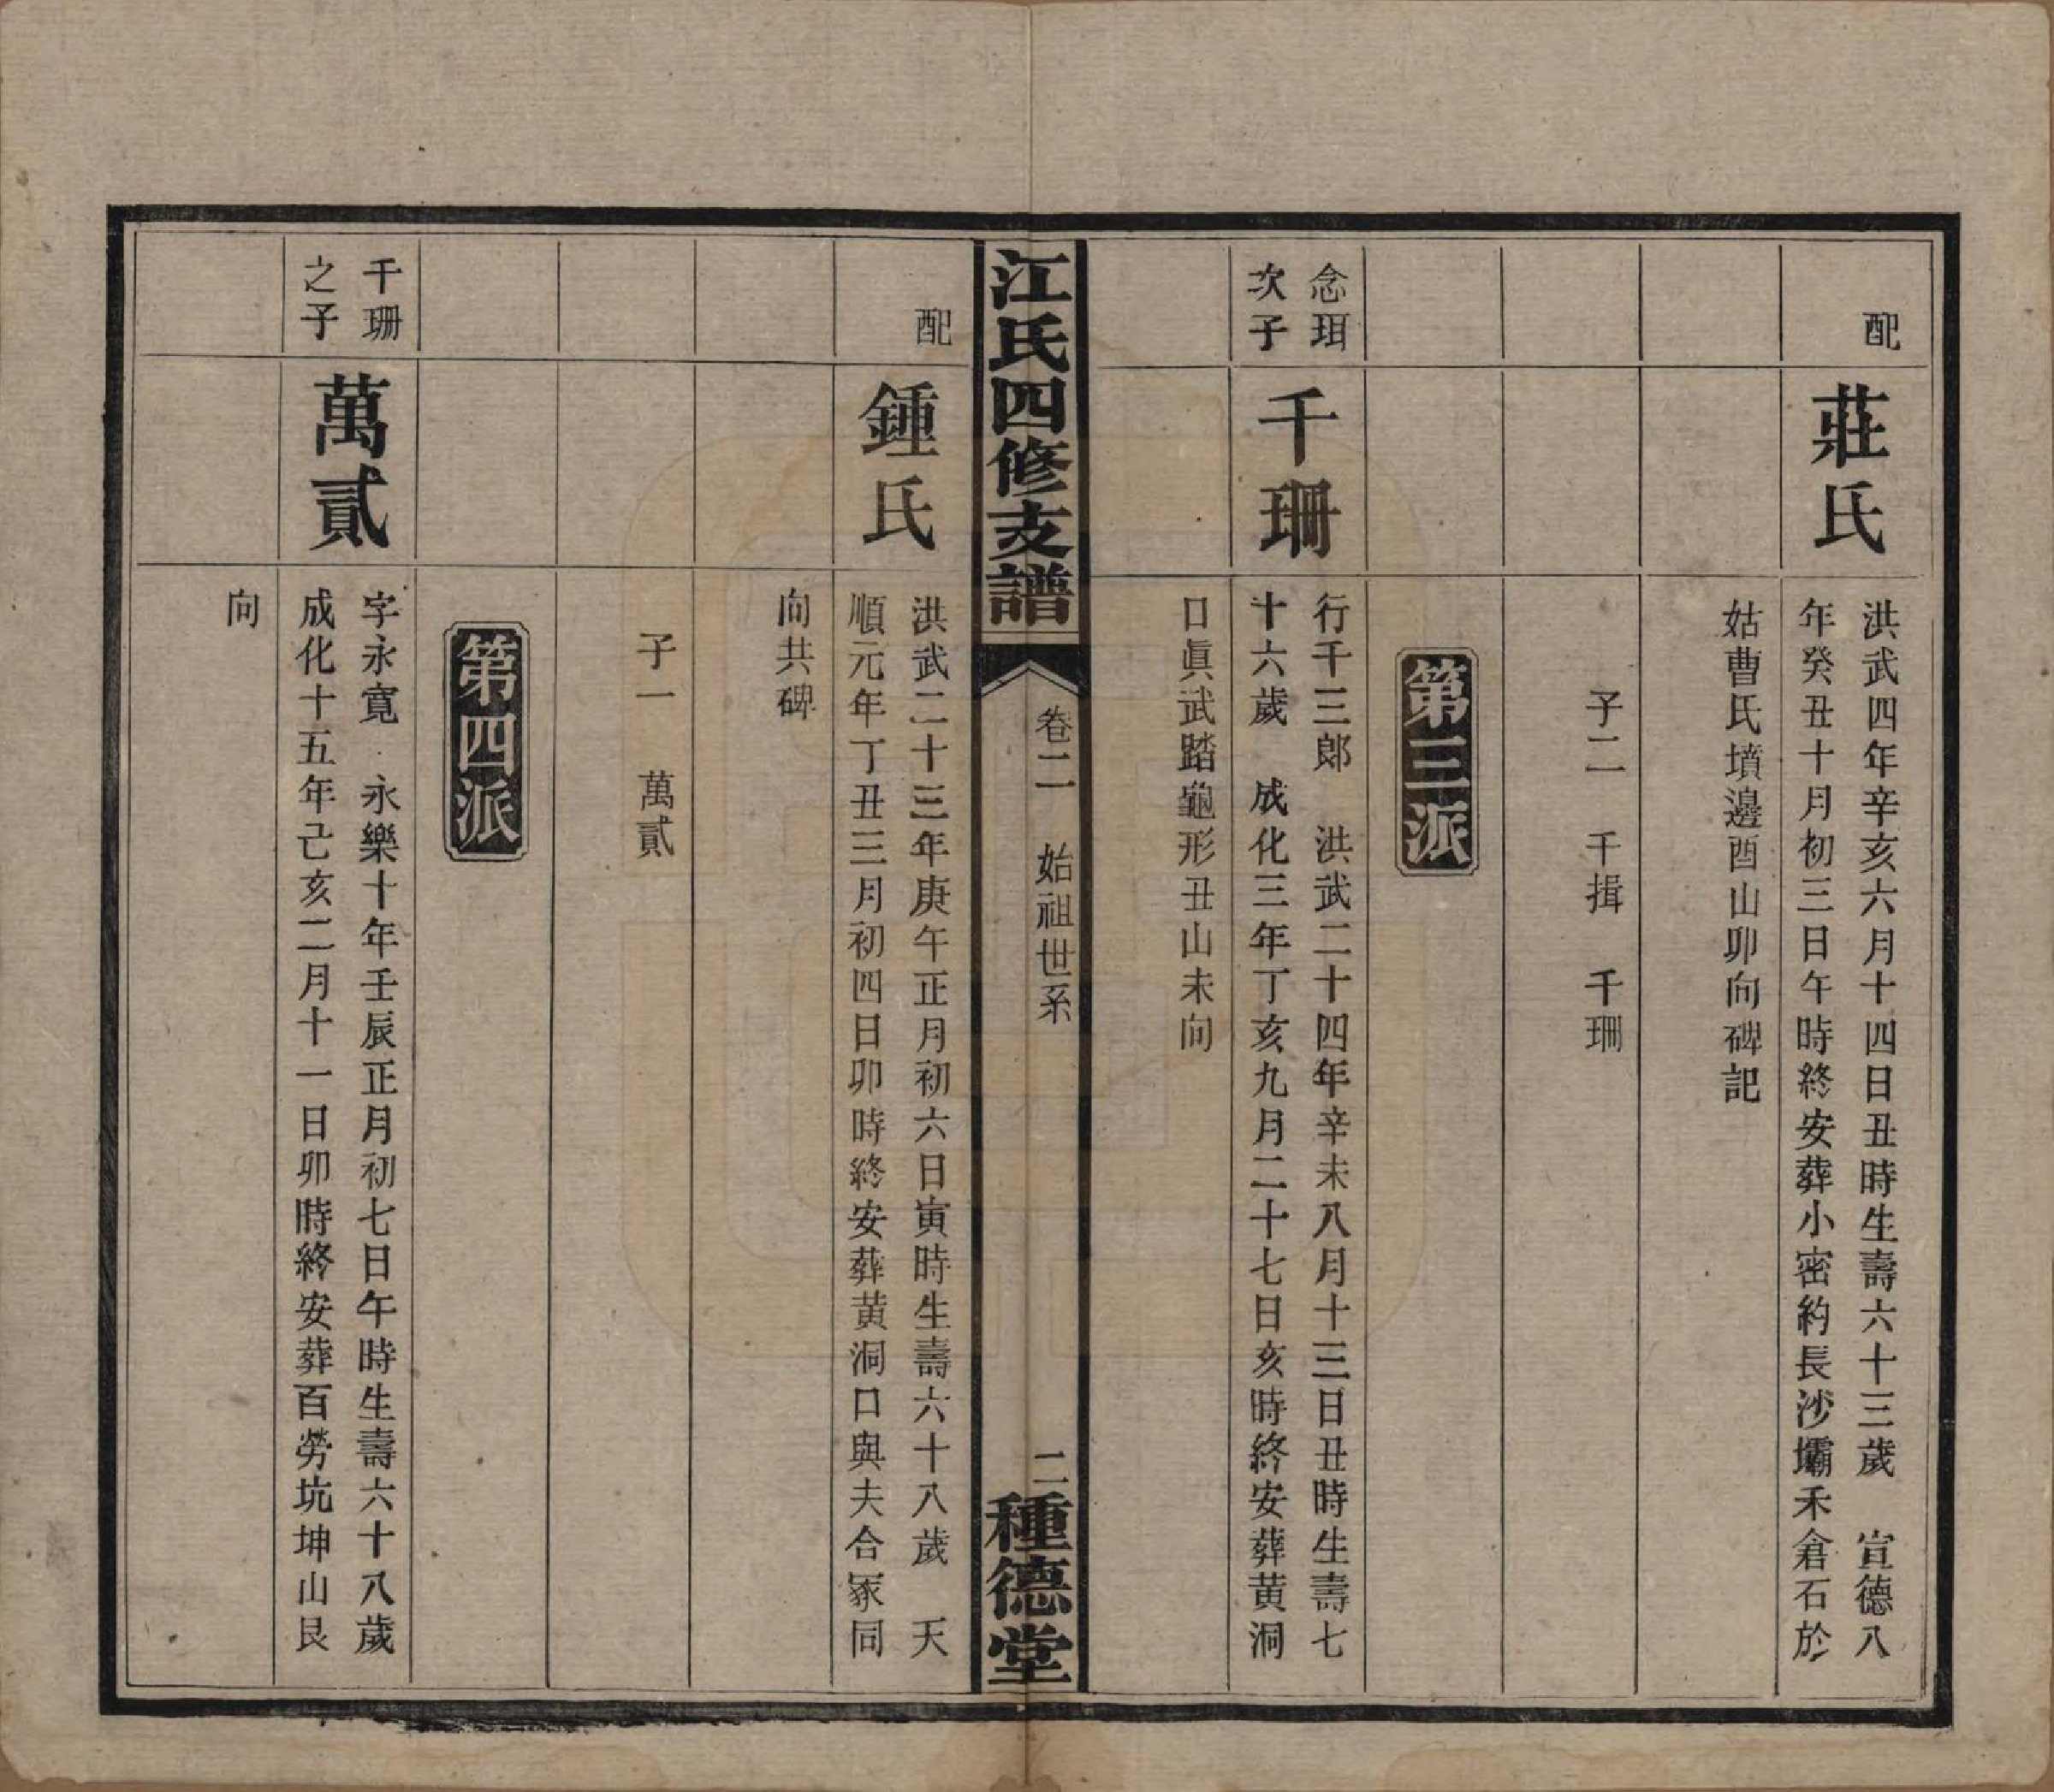 配
莊氏
洪武四年辛亥六月十四日丑時生壽六十三歲　宣德八
年癸丑十月初三日午時終安葬小密約長沙壩禾倉石於
姑曹氏墳邊酉山卯向碑記
子二　千揖　千珊
第三派
念珥
次子
千珊
行千三郎　洪武二十四年辛未八月十三日丑時生壽七
十六歲　成化三年丁亥九月二十七日亥時終安葬黃洞
口眞武踏龜形丑山未向
江氏四修支譜
卷二　始祖世系
二
種德堂
配
鍾氏
洪武二十三年庚午正月初六日寅時生壽六十八歲　天
順元年丁丑三月初四日卯時終安葬黃洞口與夫合冢同
向共碑
子一　萬貳
第四派
千珊
之子
萬貳
字永寬　永樂十年壬辰正月初七日午時生壽六十八歲
成化十五年己亥二月十一日卯時終安葬百勞坑坤山艮
向